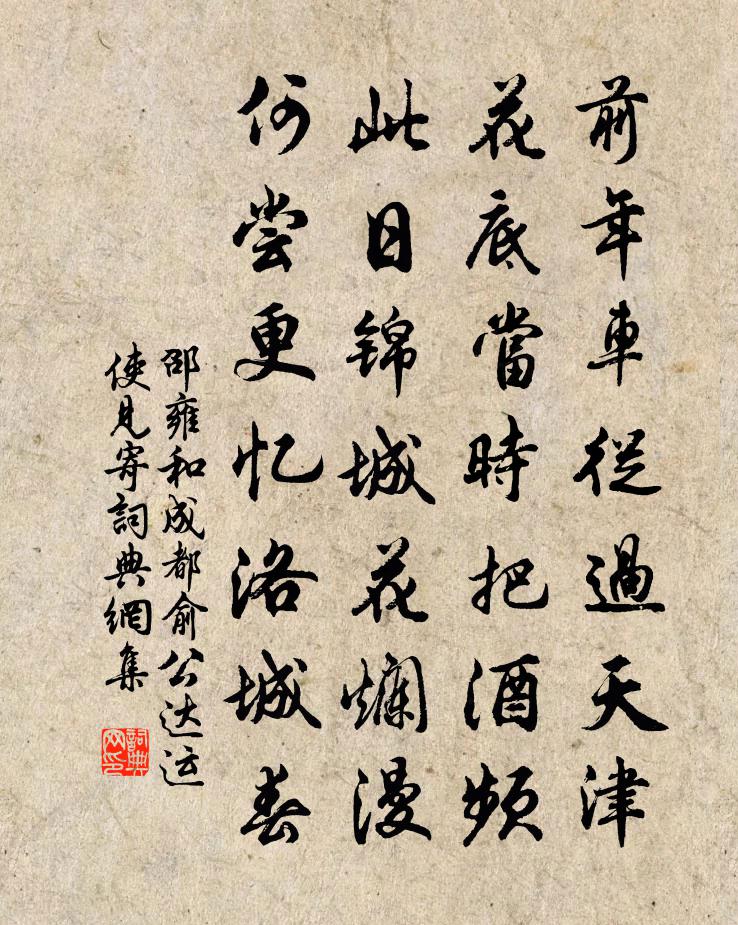 前年車從過天津
花底當時把酒頻
此日锦城花爛漫
何尝更忆洛城春
邵雍和成都俞公达运
使見寄詞典網集
詞典网印